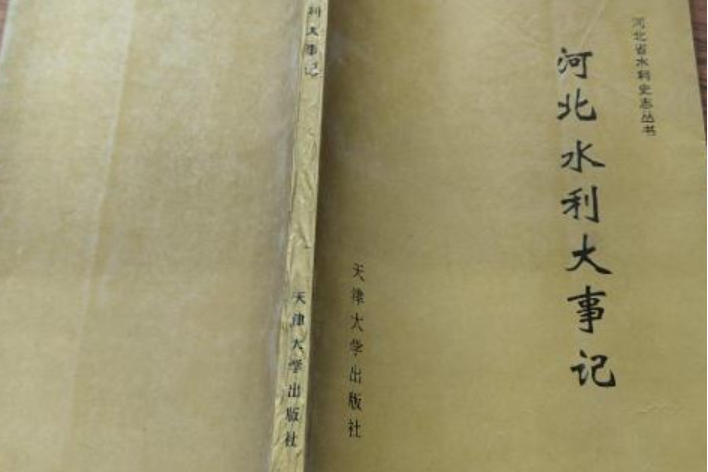 河北省水利史志丛书
河北水利大事记
天津大学出版社
利大事记
天津大学出版社